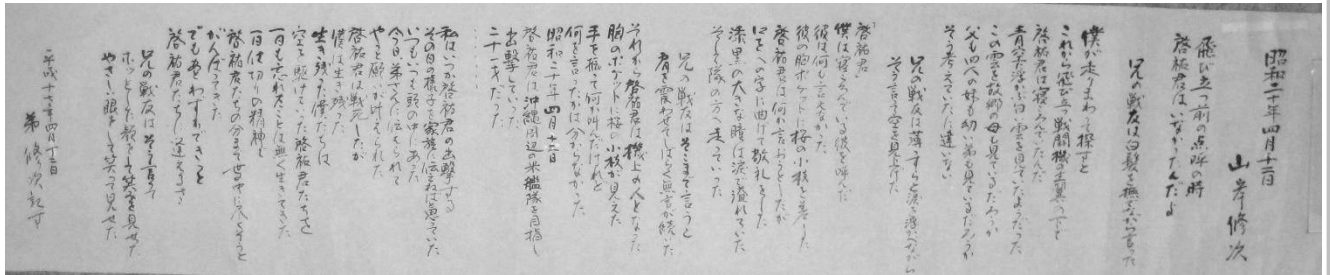 昭和二十年四月十二日
山岸修次
飛び立つ前の点呼の時
啓祐君はいなかったんだよ
兄の戦友は白髪を撫でながら言った
僕が走りまわって探すと
これから飛び立つ戦闘機の主翼の下で
啓祐君は寝ころんでいたんだ
青空に浮かぶ白い雲を見ていたようだった
この雲を故郷の母も見ているだろうか
父も四人の妹も幼い弟も見ているだろうか
そう考えていたに違いない
兄の戦友は薄すらと涙を浮かべながら
そう言って空を見上げた
「啓祐君」
僕は寝ころんでいる彼を呼んだ
彼は何も言えなかった
彼の胸ポケットに桜の小枝を差した
啓祐君は何か言おうとしたが
口をへの字に曲げて敬礼をした
漆黒の大きな瞳は涙で溢れていた
そして隊の方へ走っていった
兄の戦友はそこまで言うと
肩を震わせてしばらく無言が続いた
それから啓祐君は機上の人となった
胸のポケットに桜の小枝が見えた
手を振って何か叫んだけれど
何を言ったかは分からなかった
昭和二十年四月十二日
啓祐君は沖縄周辺の米艦隊を目指し
出撃していった
二十一才だった
…………
私はいつか啓祐君の出撃する
その日の様子を家族に伝えねばと思っていた
いつもいつも頭の中にあった
今日弟さんに伝えられて
やっと願いが叶えられた
啓祐君は戦死したが
僕は生き残った
生き残った僕たちは
空を駆けていた啓祐君たちを
一日も忘れたことは無く生きてきた
一日一日切りの精神で
啓祐君たちの分まで世の中に尽くそうと
がんばってきた
でもあの日をわすれてきたこと
啓祐君たちに逢えるさ
兄の戦友はそう言って
ホッとした顔をして笑顔を見せた
やさしい眼をして笑って見せた
平成十七年四月十二日
弟 修次記す